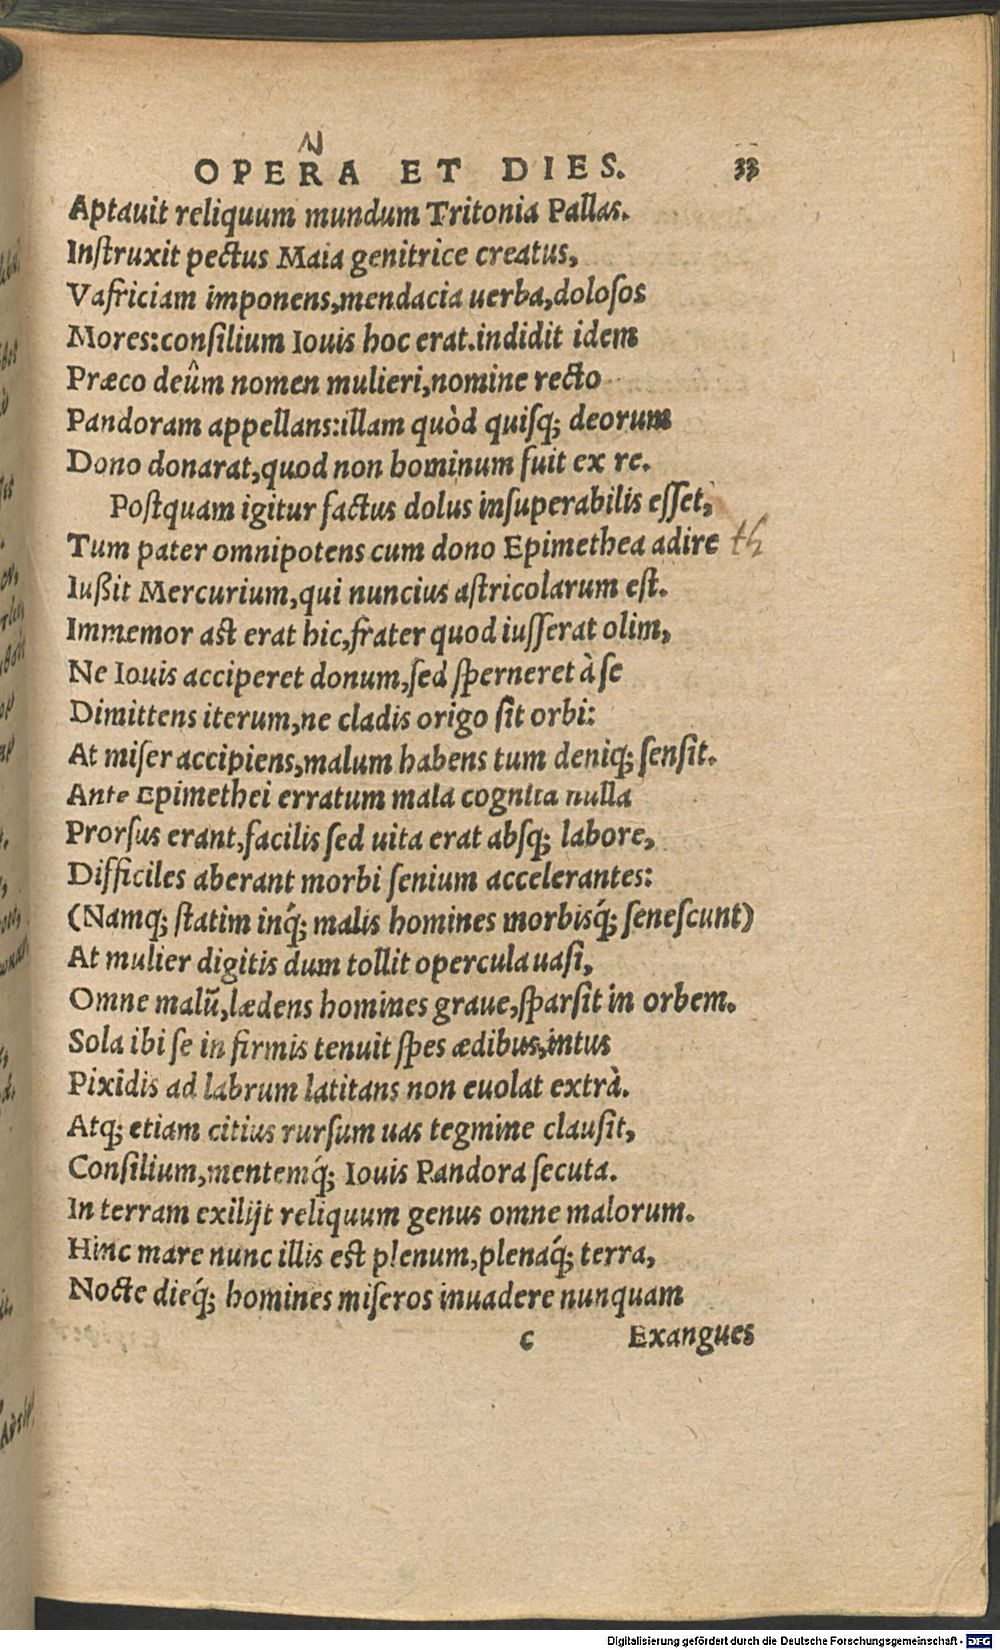 OPERA ET DIES. 33
Aptauit reliquum mundum Tritonia Pallas.
Inſtruxit pectus Maia genitrice creatus,
Vafriciam imponens,mendacia uerba,doloſos
Mores:conſilium Iouis hoc erat.indidit idem
Præco deûm nomen mulieri,nomine recto
Pandoram appellans:illam quòd quiſq; deorum
Dono donarat,quod non hominum fuit ex re.
Poſtquam igitur factus dolus inſuperabilis eſſet,
Tum pater omnipotens cum dono Epimethea adire
Iußit Mercurium,qui nuncius aſtricolarum eſt.
Immemor aſt erat hic,frater quod iuſſerat olim,
Ne Iouis acciperet donum,ſed ſperneret à ſe
Dimittens iterum,ne cladis origo ſit orbi:
At miſer accipiens,malum habens tum deniq; ſenſit.
Ante Epimethei erratum mala cognita nulla
Prorſus erant,facilis ſed uita erat abſq; labore,
Difficiles aberant morbi ſenium accelerantes:
(Namq; ſtatim inq́; malis homines morbisq́; ſeneſcunt)
At mulier digitis dum tollit opercula uaſi,
Omne malū,lædens homines graue,ſparſit in orbem.
Sola ibi ſe in firmis tenuit ſpes ædibus,intus
Pixidis ad labrum latitans non euolat extrà.
Atq; etiam citius rurſum uas tegmine clauſit,
Conſilium,mentemq́; Iouis Pandora ſecuta.
In terram exilijt reliquum genus omne malorum.
Hinc mare nunc illis eſt plenum,plenaq́; terra,
Nocte dieq́; homines miſeros inuadere nunquam
c Exangues
Digitalisierung gefördert durch die Deutsche Forschungsgemeinschaft - DFG